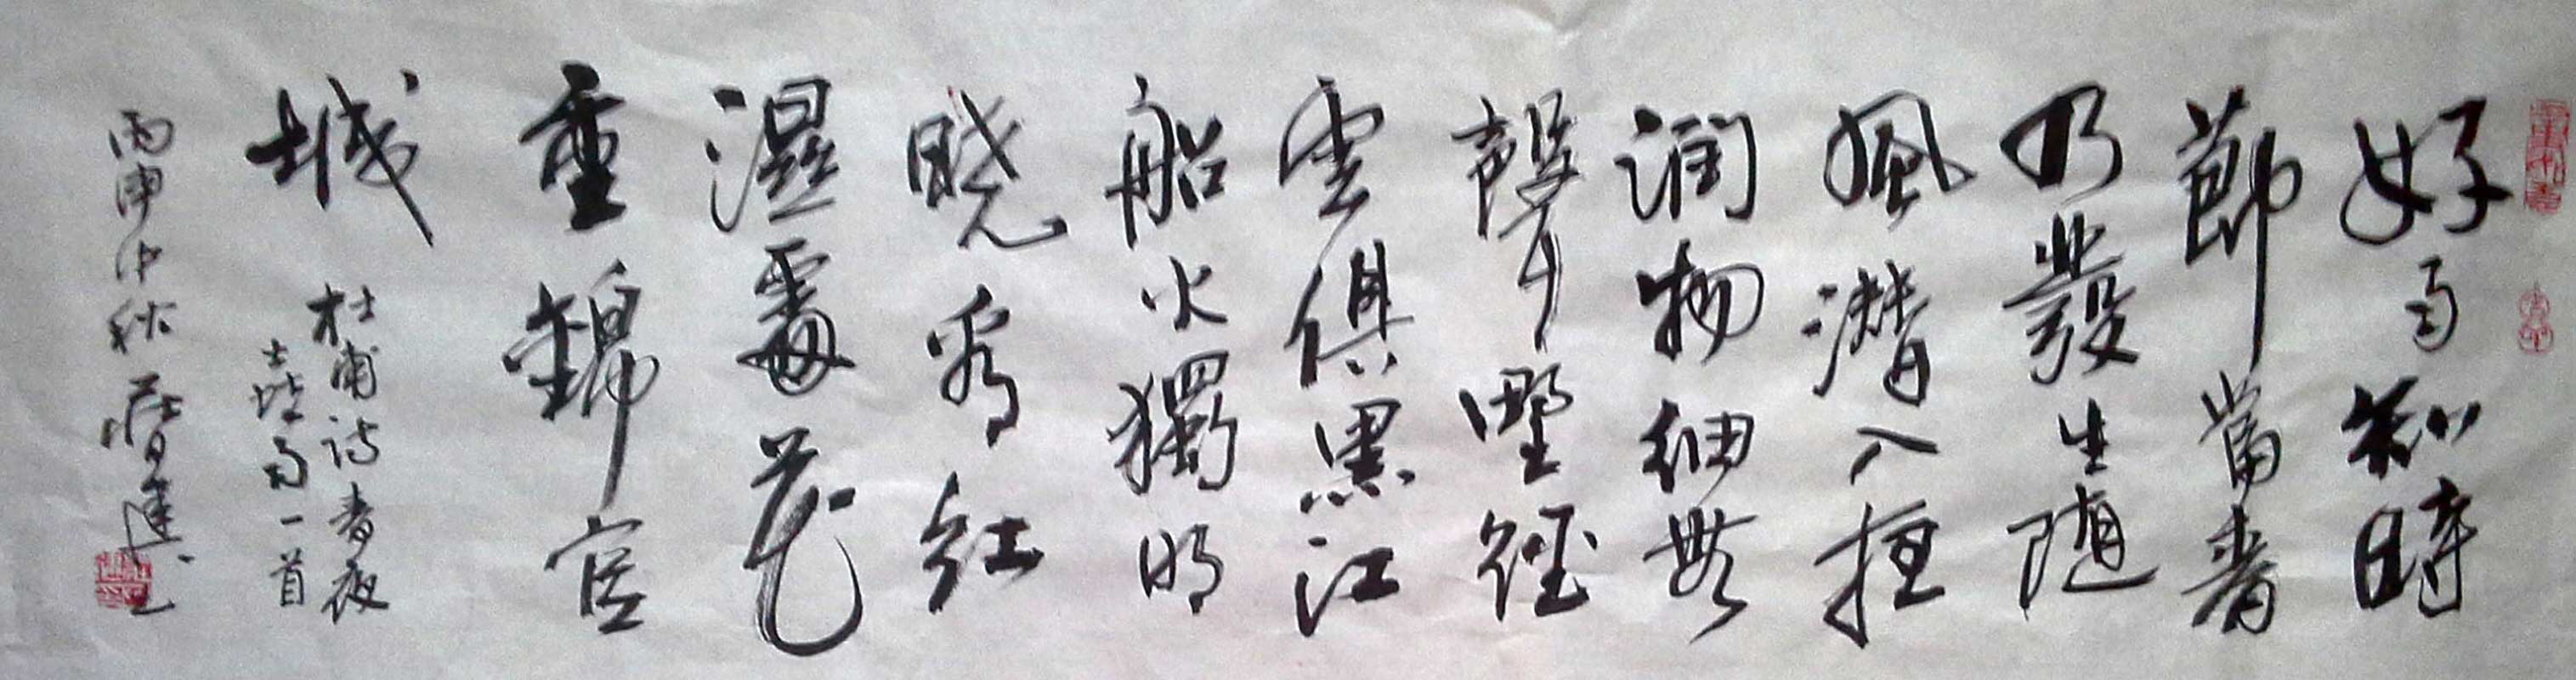 好雨知時
節當春
乃發生随
風潛入
润物细無
聲野徑
雲俱黑江
船火獨明
曉看红
濕處花
重錦官
城
杜甫诗春夜
喜雨一首
丙申中秋